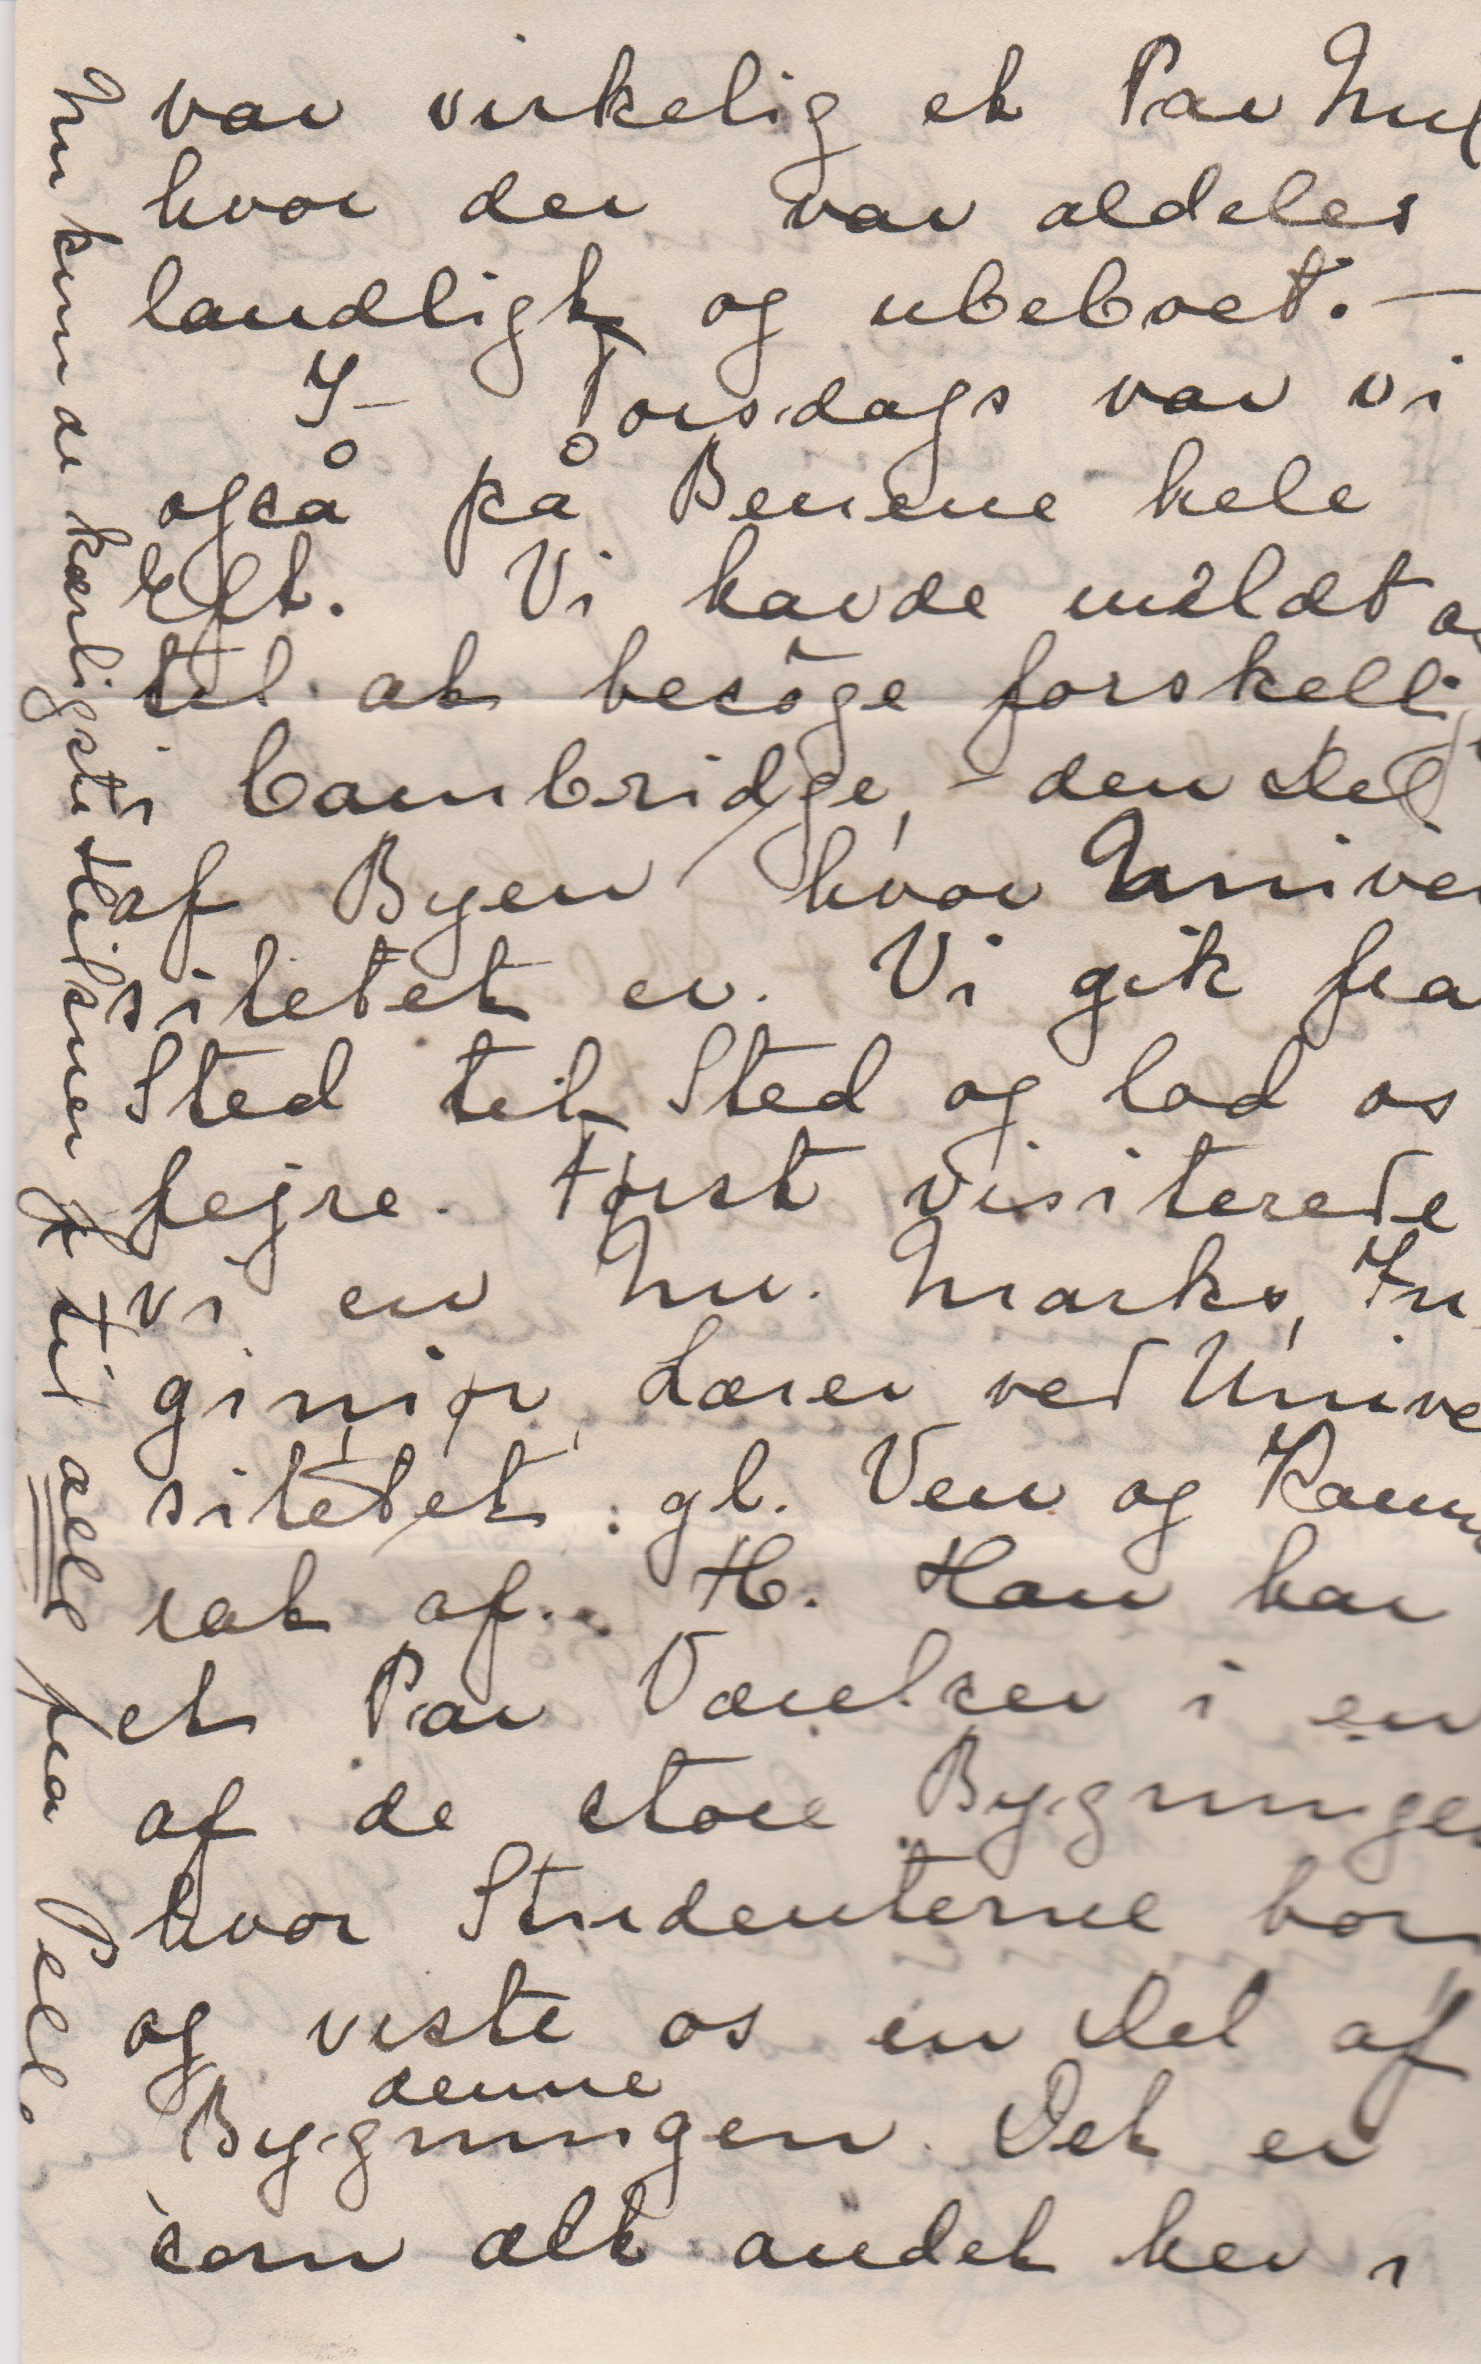 var virkelig et Par Mil
hvor der var aldeles
landligt og ubeboet. —
I Torsdags var vi
også på Benene hele
Eft. Vi havde meldt
til at besöge forskell
i Cambridge, - den Del
af Byen hvor Univer
sitetet er. Vi gik fra
Sted til Sted og lod os
fejre. Först visiterede
vi en Mr. Marks, In
giniör, Lærer ved Unive
sitetet. gl. Ven og Kamm
rat af H. Han har
et Par Værelser i en
af de store Bygninger
hvor Studenterne bor
og viste os en Del af
denne
Bygningen. Det er
som alt andet her i
Nu kun de kærligste hilsner til alle fra Pelle.